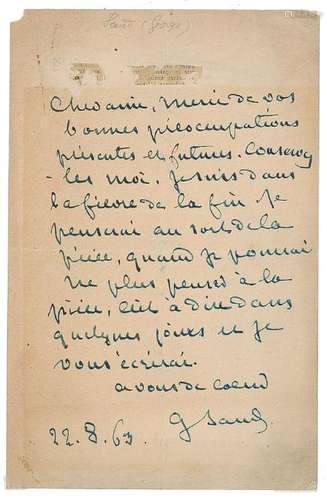 Sand (George)
Cher ami, merci de vos
bonnes préoccupations
présentes et futures. Conservez
les moi. Je suis dans
la fièvre de la fin. Je
penserai au sort de la
pièce, quand je pourrai
ne plus penser à la
pièce, c'est à dire dans
quelques jours et je
vous écrirai.
a vous de coeur
G Sand
22. 8. 63.